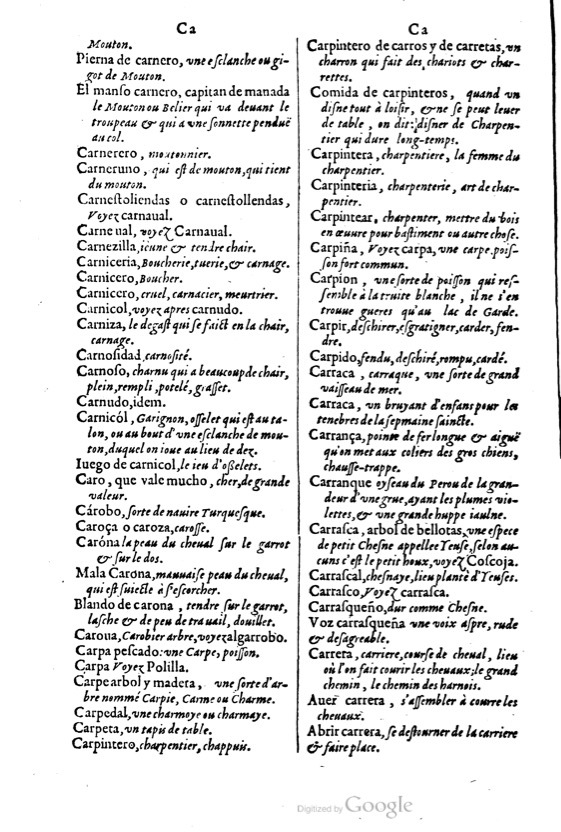 Ca
Mouton.
Pierna de carnero, vne esclanche ou gi-
got de Mouton.
El manso carnero, capitan de manada
le Mouton ou Belier qui va deuant le
troupeau & qui a vne sonnette penduë
au col.
Carnerero, moutonnier.
Carneruno, qui est de mouton, qui tient
du mouton.
Carnestoliendas o carnestollendas,
Voyez carnaual.
Carneual, voyez Carnaual.
Carnezilla, ieune & tendre chair.
Carniceria, Boucherie, tuerie, & carnage.
Carnicero, Boucher.
Carnicero, cruel, carnacier, meurtrier.
Carnicol, voyez apres carnudo.
Carniza, le degast qui se faict en la chair,
carnage.
Carnosidad, carnosité.
Carnoso, charnu qui a beaucoup de chair,
plein, rempli, potelé, grasset.
Carnudo, idem.
Carnicól, Garignon, osselet qui est au ta-
lon, ou au bout d'vne esclanche de mou-
ton, duquel on ioue au lieu de dez.
Iuego de carnicol, le ieu d'osselets.
Caro, que vale mucho, cher, de grande
valeur.
Cárobo, sorte de nauire Turquesque.
Caroça o caroza, carosse.
Caróna la peau du cheual sur le garrot
& sur le dos.
Mala Carona, mauuaise peau du cheual,
qui est suiecte à s'escorcher.
Blando de carona, tendre sur le garrot,
lasche & de peu de trauail, douillet.
Caroua, Carobier arbre, voyez algarrobo.
Carpa pescado: vne Carpe, poisson.
Carpa Voyez Polilla.
Carpe arbol y madera, vne sorte d'ar-
bre nommé Carpie, Carme ou Charme.
Carpedal, vne charmoye ou charmaye.
Carpeta, vn tapis de table.
Carpintero, charpentier, chappuis.
Ca
Carpintero de carros y de carretas, vn
charron qui fait des chariots & char-
rettes.
Comida de carpinteros, quand vn
disne tout à loisir, & ne se peut leuer
de table, on dit: disner de Charpen-
tier qui dure long-temps.
Carpintera, charpentiere, la femme du
charpentier.
Carpinteria, charpenterie, art de char-
pentier.
Carpintear, charpenter, mettre du bois
en œuure pour bastiment ou autre chose.
Carpiña, Voyez carpa, vne carpe pois-
son fort commun.
Carpion, vne sorte de poisson qui res-
semble à la truite blanche, il ne s'en
trouue gueres qu'au lac de Garde.
Carpir, deschirer, esgratigner, carder, fen-
dre.
Carpido, fendu, deschiré, rompu, cardé.
Carraca, carraque, vne sorte de grand
vaisseau de mer.
Carraca, vn bruyant d'enfans pour les
tenebres de la sepmaine saincte.
Carrança, pointe de fer longue & aiguë
qu'on met aux coliers des gros chiens,
chausse-trappe.
Carranque oyseau du Perou de la gran-
deur d'vne grue, ayant les plumes vio-
lettes, & vne grande huppe iaulne.
Carrasca, arbol de bellotas, vne espece
de petit Chesne appellee Yeuse, selon au-
cuns c'est le petit houx, voyez Coscoja.
Carrascal, chesnaye, lieu planté d'Yeuses.
Carrasco, Voyez carrasca.
Carrasqueño, dur comme Chesne.
Voz carrasqueña vne voix aspre, rude
& desagreable.
Carrera, carriere, course de cheual, lieu
où l'on fait courir les cheuaux; le grand
chemin, le chemin des harnois.
Auer carrera, s'assembler à courre les
cheuaux.
Abrir carrera, se destourner de la carriere
& faire place.
Digitized by Google